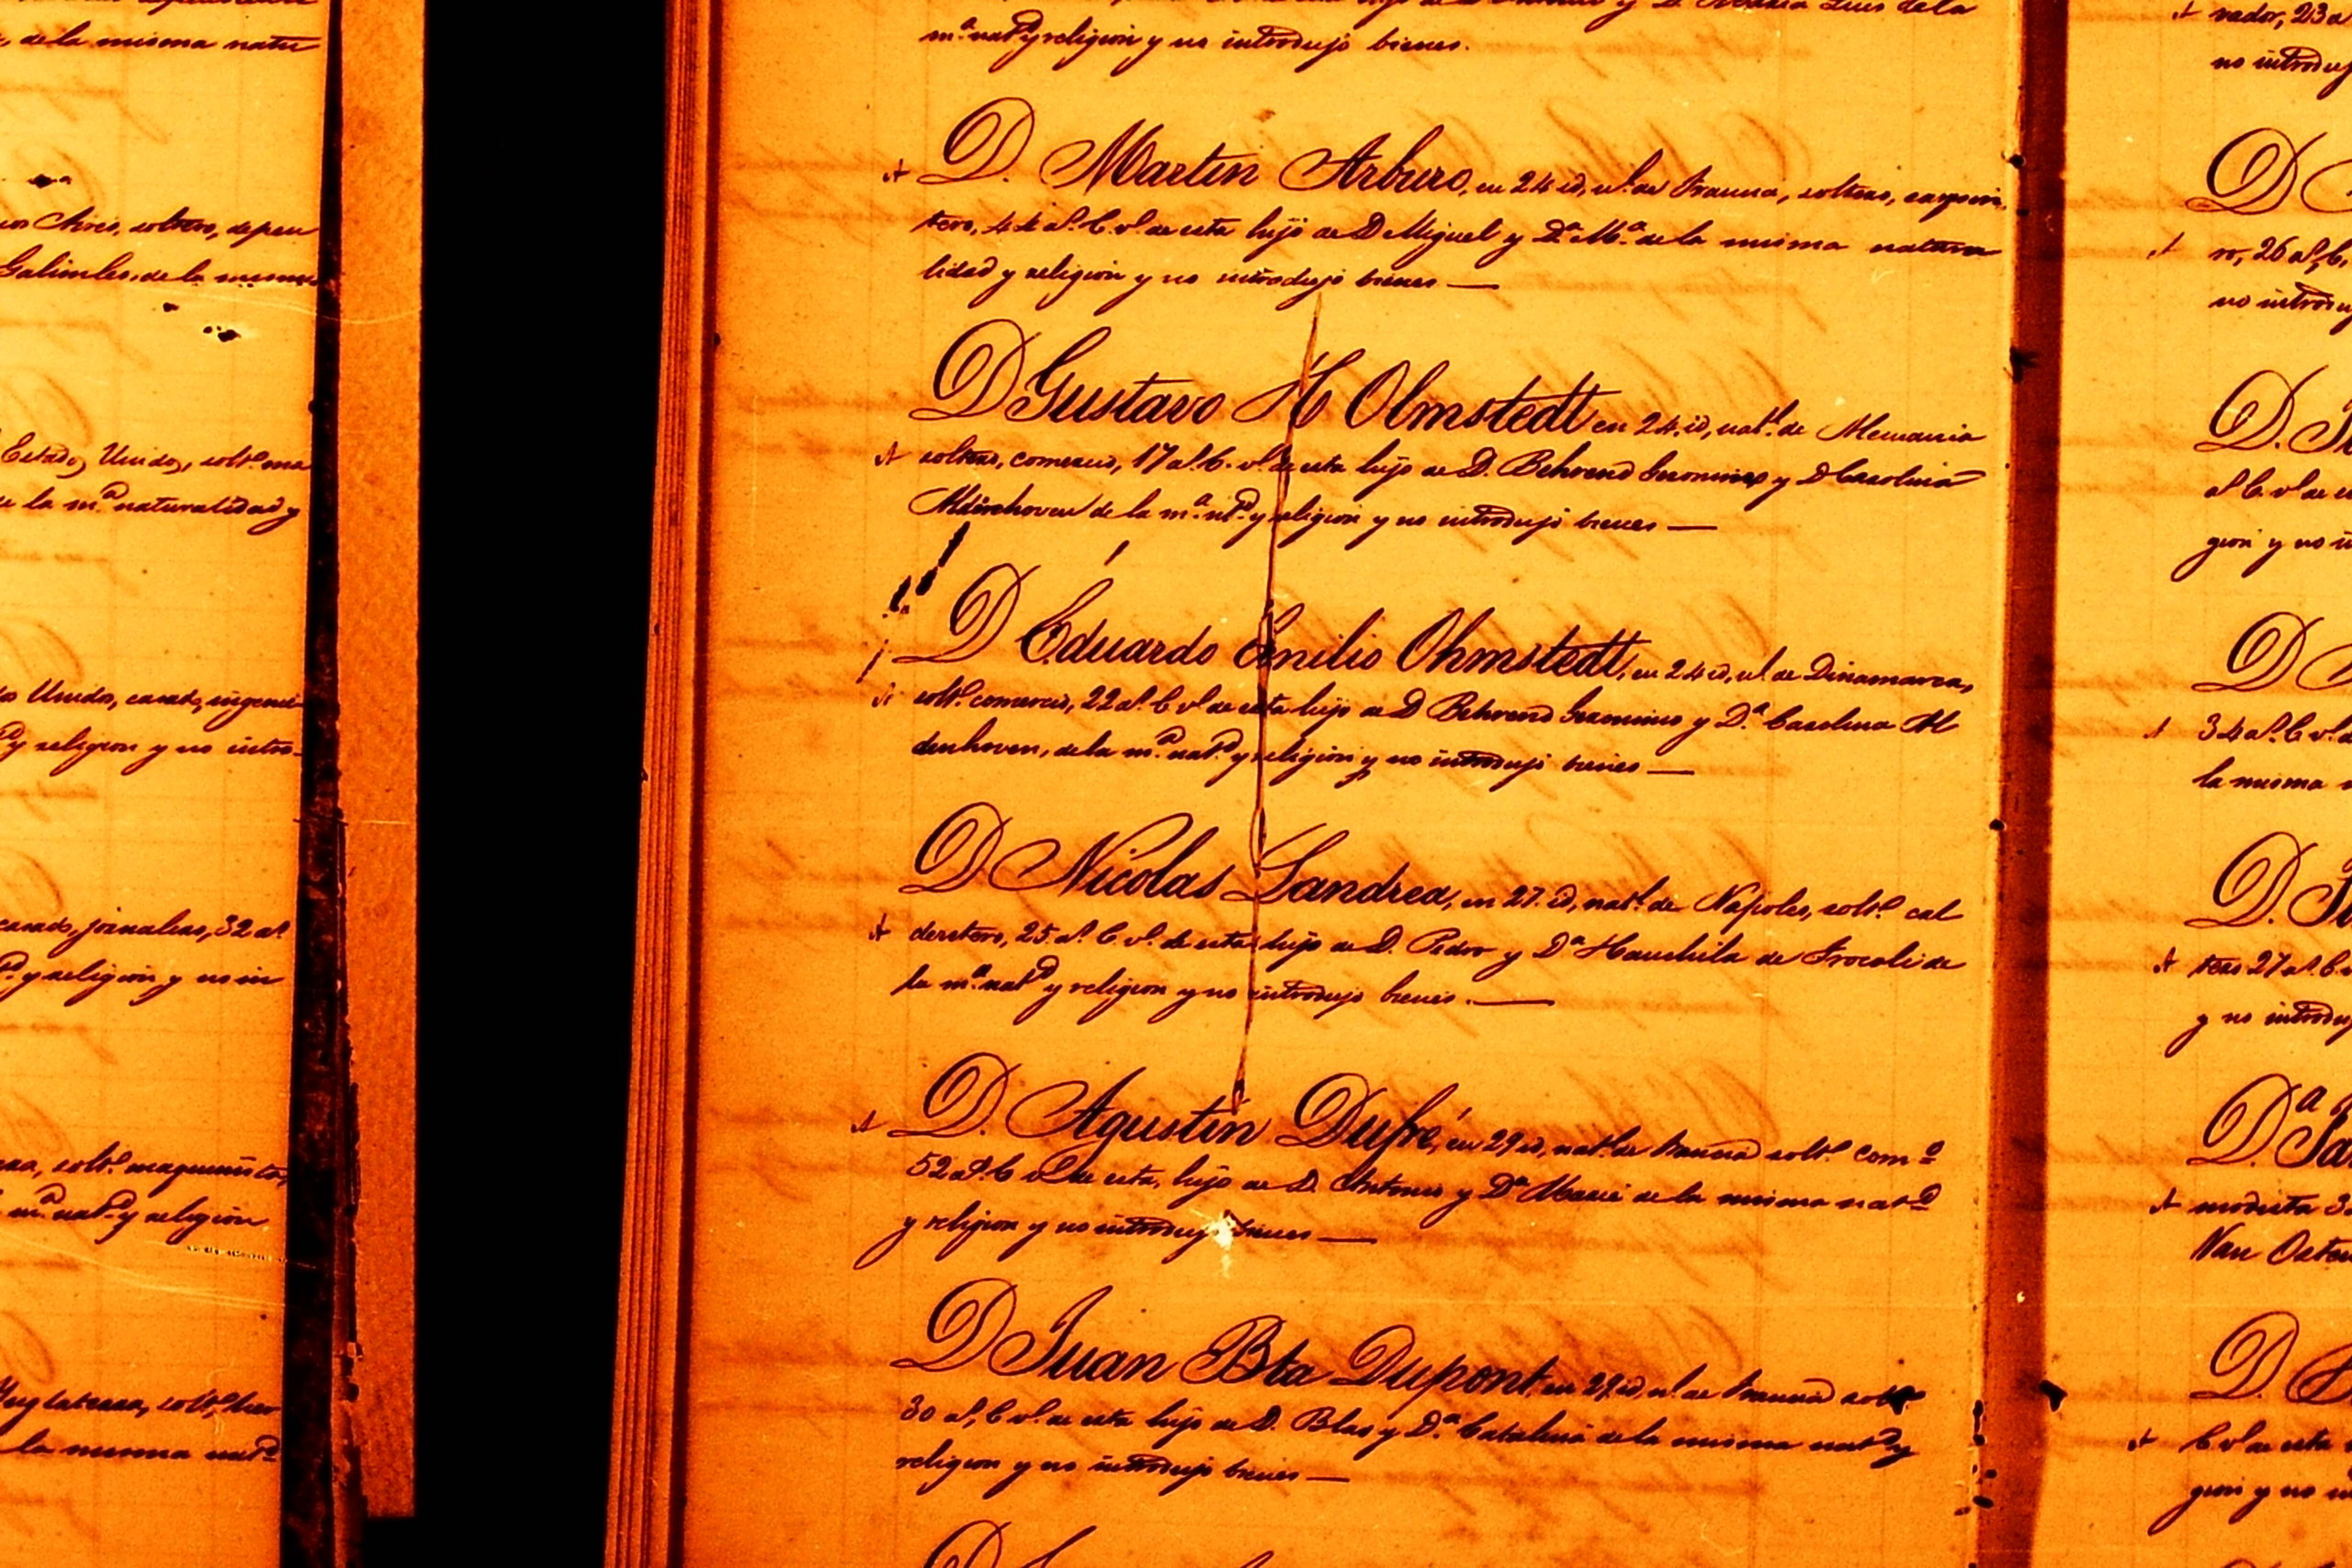 de la misma natu
os Aires, soltero, depen
de la misma
Estados Unidos, solt.º ma
de la m.ª naturalidad y
Unidos, casado, ingeni
y religion y no intro-
casado, jornalero, 32 a.s
y religion y no in
solt.º maquinista,
m.ª nat.d y religion
Inglaterra, solt.º
la misma nat.d
m.ª nat.d y religion y no introdujo bienes.
A D. Martin Arburo, en 24 id, n.l de Francia, soltero, carpin
tero, 44 a.s C. v.l de esta hijo de D Miguel y D.ª M.ª de la misma natura
lidad y religion y no introdujo bienes —
D Gustavo H Olmstedt en 24 id, nat.l de Alemania
A soltero, comercio, 17 a.s C. v.l de esta hijo de D. Behrend Geronimo y D Carolina
de la m.ª nt.d y religion y no introdujo bienes —
D Eduardo Emilio Ohmstedt, en 24 id, n.l de Dinamarca,
A solt.º comercio, 22 a.s C v.l de esta hijo de D Behrend Geronimo y D.ª Carolina Al
denhoven, de la m.ª nat.d y religion y no introdujo bienes —
D Nicolas Landrea, en 27 id, nat.l de Napoles, solt.º cal
A deretero, 25 a.s C v.l de esta hijo de D. Pedro y D.ª de
la m.ª nat.d y religion y no introdujo bienes. —
A D. Agustin Dufré, en 29 id, nat.l de Francia solt.º com.º
52 a.s C v.l de esta, hijo de D. Antonio y D.ª Maria de la misma nat.d
y religion y no introdujo bienes —
D Juan Bta Dupont, en 29 id, n.l de Francia solt.º
30 a.s, C v.l de esta hijo de D. Blas y D.ª Catalina de la misma nat.d y
religion y no introdujo bienes —
A nador, 23 a
no introduj
D.
A ro, 26 a.s, C.
no introdu
D.
a.s C. v.l de
gion y no i
D
A 34 a.s C v.l
la misma
D.
A tero 27 a.s C
y no introdu
D.ª
A modista
Van
D.
A C v.l de esta
gion y no